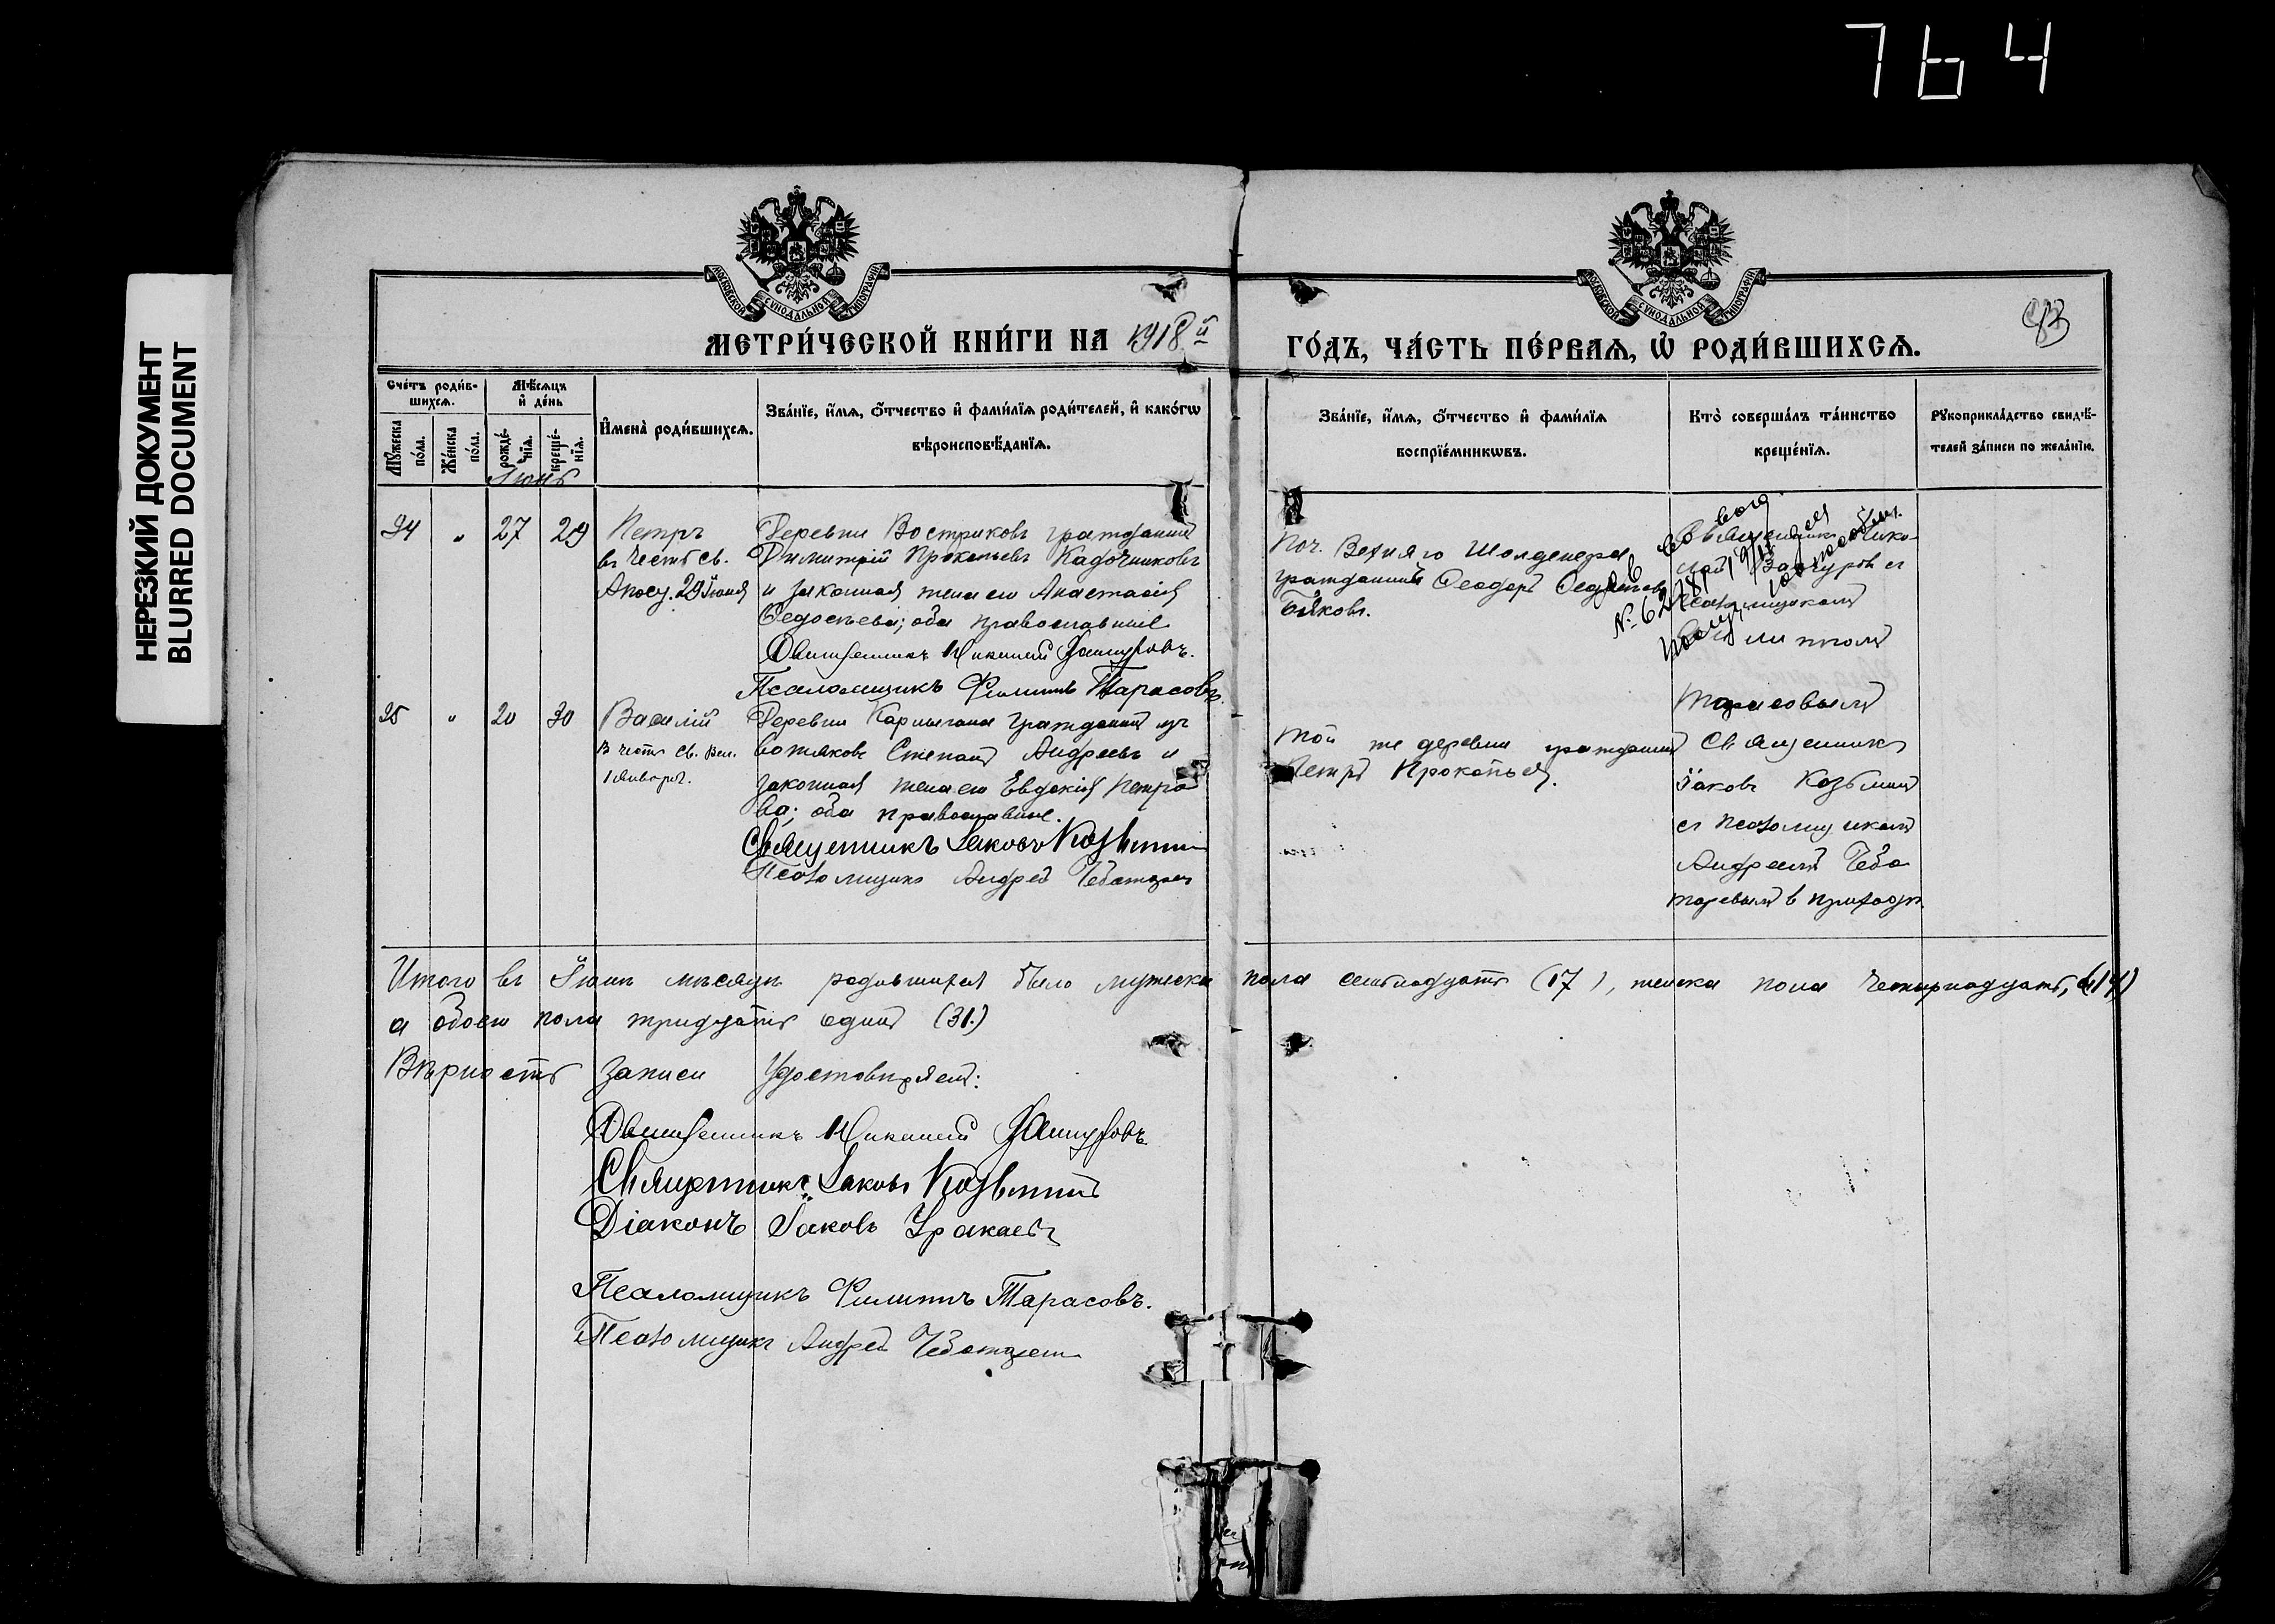 764
НЕРЕЗКИЙ ДОКУМЕНТ
BLURRED DOCUMENT
МОСКОВСКОЙ СУНОДАЛЬНОЙ ТИПОГРАФІИ
МОСКОВСКОЙ СУНОДАЛЬНОЙ ТИПОГРАФІИ
МЕТРИ́ЧЕСКОЙ КНИ́ГИ НА 1918й
ГО́ДЪ, ЧА́СТЬ ПЕ́РВАѦ, Ѡ҆ РОДИ́ВШИХСѦ.
83
Сче́тъ роди́в-
шихсѧ.
Мѣ́сѧцъ
и҆ де́нь
Мꙋ́жеска
по́ла.
Же́нска
по́ла.
рожде́-
нїѧ.
креще́-
нїѧ.
И҆мена̀ роди́вшихсѧ.
Зва́нїе, и҆́мѧ, ѻ҆́тчество и҆ фами́лїѧ роди́телей, и҆ како́гѡ
вѣроисповѣ́данїѧ.
Зва́нїе, и҆́мѧ, ѻ҆́тчество и҆ фами́лїѧ
воспрїе́мникѡвъ.
Кто̀ соверша́лъ та́инство
креще́нїѧ.
Рꙋкоприкла́дство свидѣ́-
телей за́писи по жела́нїю.
Іюнь
34 " 27 29
Петръ
въ честь св.
Апос. 29 Іюня
Деревни Востриковъ гражданинъ
Димитрій Прокопьевъ Кадочниковъ
и законная жена его Анастасія
Федосѣева; оба православные
Священникъ Николай
Псаломщикъ Филиппъ Тарасовъ.
Поч. гражданинъ Феодоръ
Быковъ.
Священникъ Нико-
лай съ
Псаломщикомъ
Филиппомъ
Тарасовымъ
35 " 20 30
Василій
В честь св. Вас.
1 Января.
Деревни гражданинъ изъ
вотяковъ Степанъ Андреевъ и
законная жена его Евдокія Петро
ва; оба православные.
Священникъ Іаковъ Козьминъ
Псаломщикъ Андрей Чеботарев
Той же деревни гражданинъ
Петръ Прокопьев.
Священникъ
Іаковъ Козьминъ
съ псаломщикомъ
Андреемъ Чебо
таревымъ в приходѣ.
Итого въ Іюнѣ мѣсяцѣ родившихся было мужска пола семнадцать (17), женска пола четырнадцать, (14)
а обоего пола тридцать одинъ (31.)
Вѣрность записи удостовѣряемъ:
Священникъ Николай
Священникъ Іаковъ Козьминъ
Діаконъ Іаковъ Уракаевъ
Псаломщикъ Филиппъ Тарасовъ.
Псаломщикъ Андрей Чеботарев